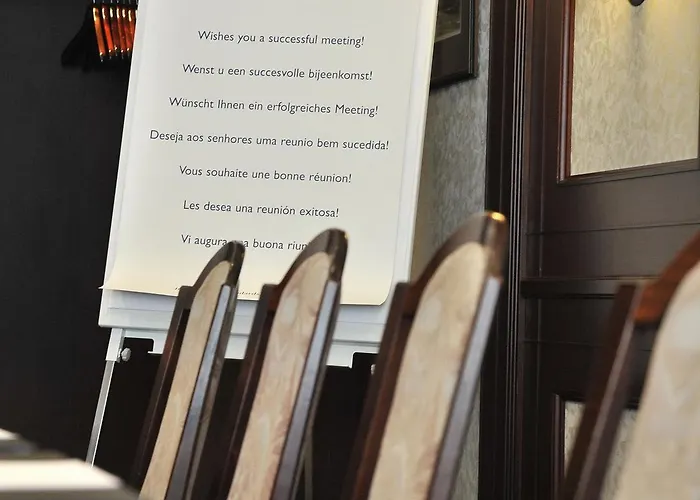 Wishes you a successful meeting!
Wenst u een succesvolle bijeenkomst!
Wünscht Ihnen ein erfolgreiches Meeting!
Deseja aos senhores uma reunio bem sucedida!
Vous souhaite une bonne réunion!
Les desea una reunión exitosa!
Vi augura buona